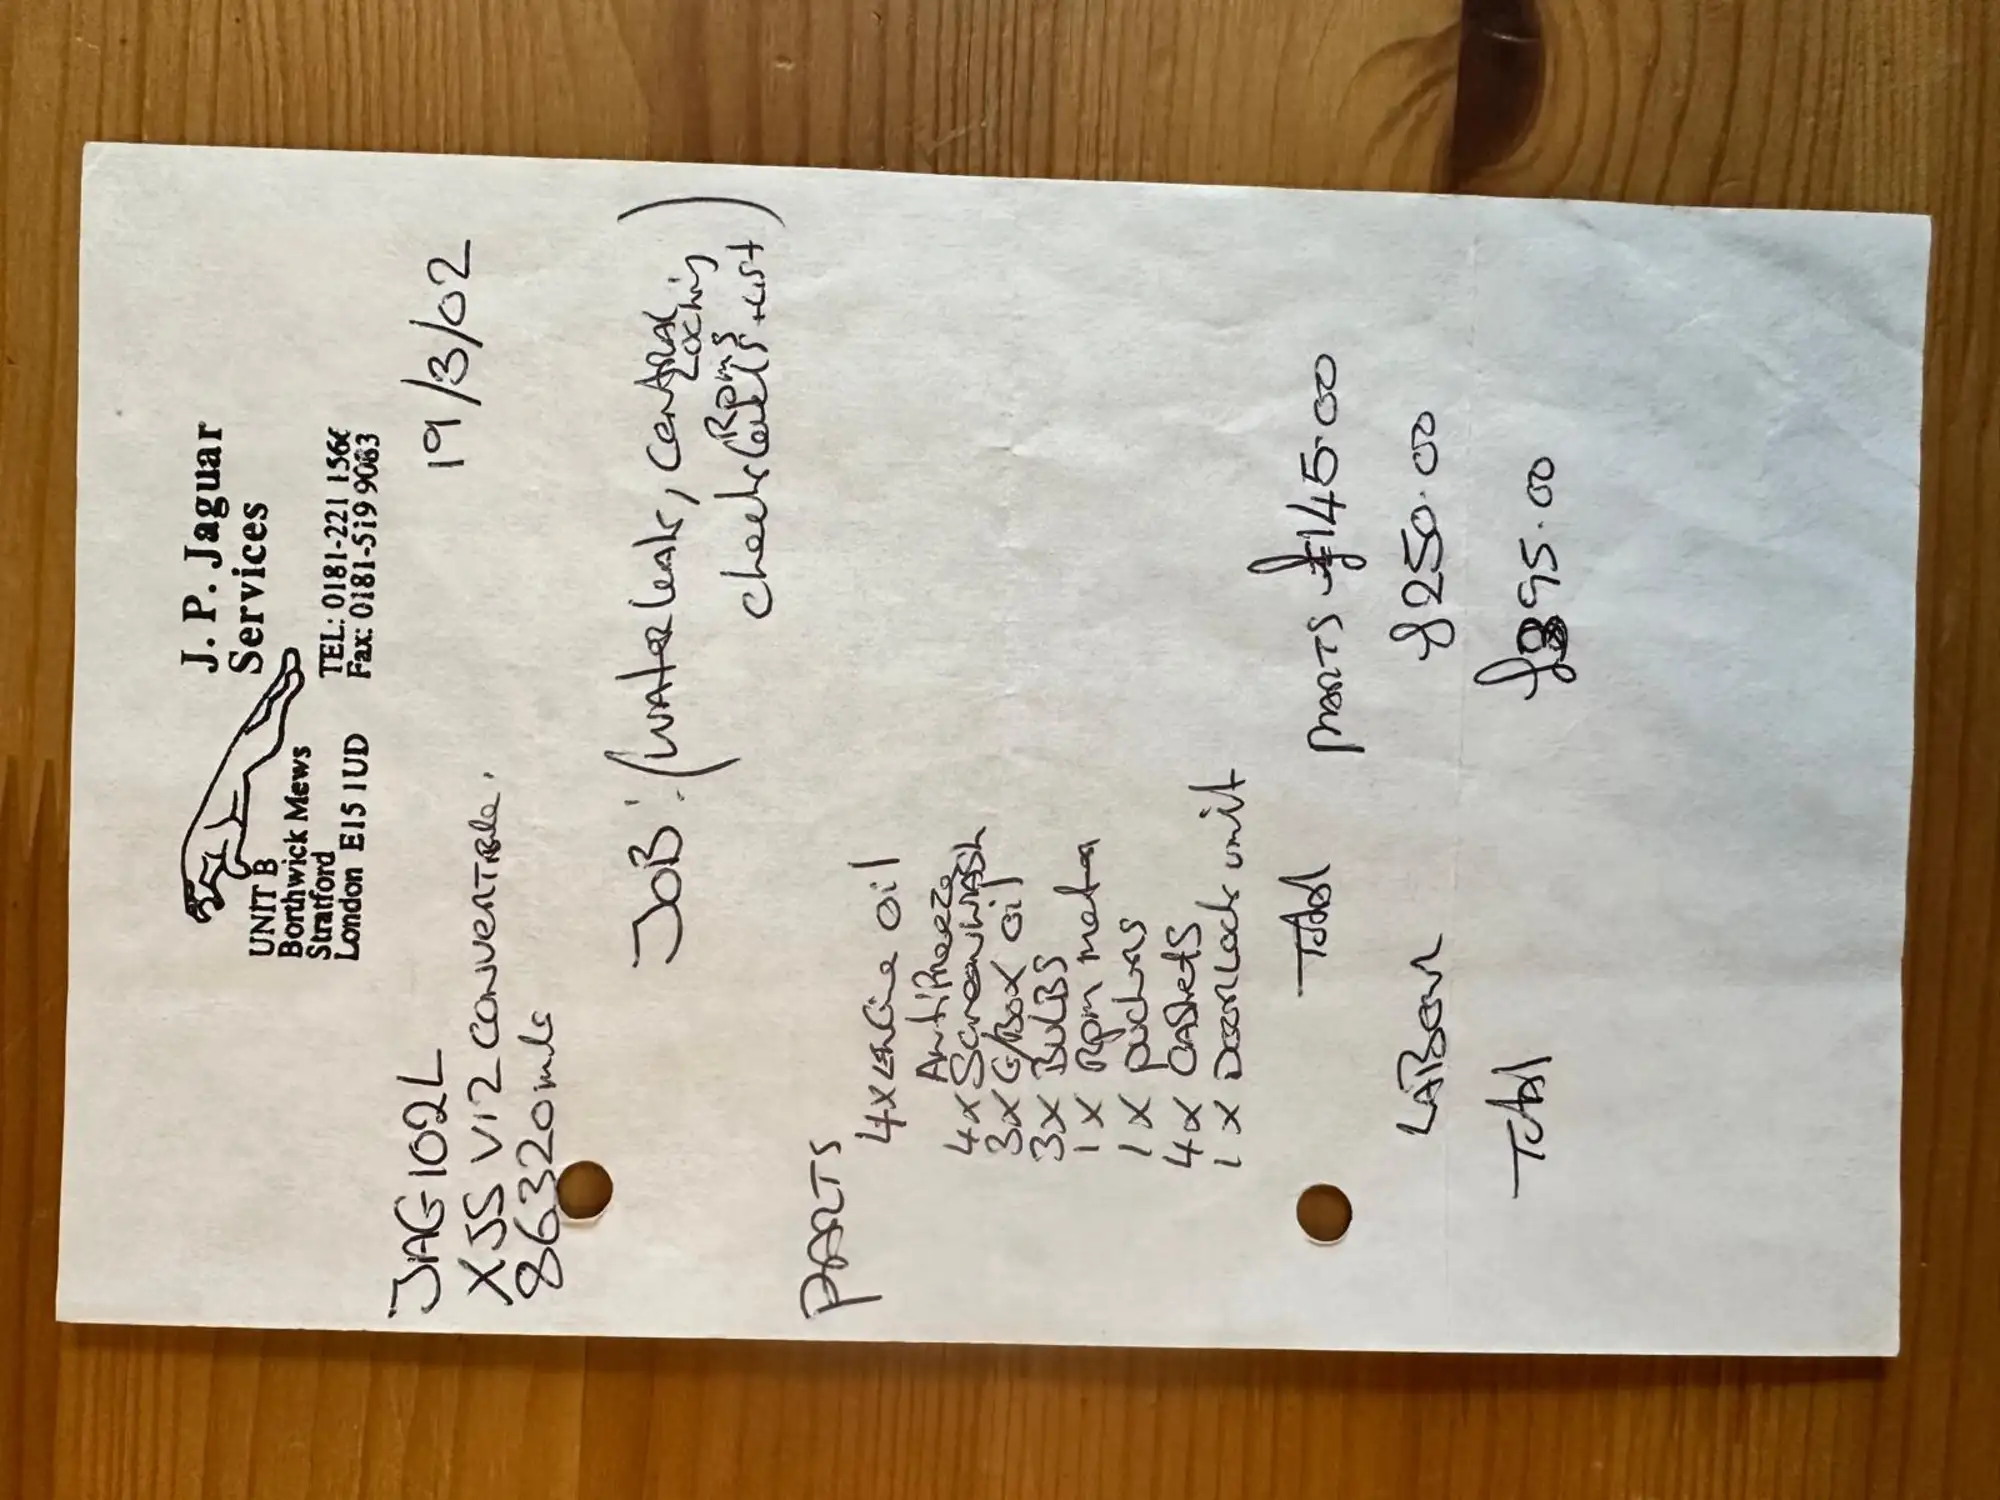 J. P. Jaguar
Services
UNIT B
Borthwick Mews
Stratford
London E15 1UD
TEL: 0181-221 156
Fax: 0181-519 9083
19/3/02
JAG 102L
XJS V12 CONVERTIBLE.
86320 mls
JOB: (WATER LEAK, CENTRAL
LOCKING
RPMS
check + LIST)
PARTS
4x ENGine Oil
Antifreeze
4x Screenwash
3x G/Box oil
3x BULBS
1x Rpm meter
1x
4x GASkets
1x Door Lock unit
Total PARTS £145.00
LABOUR £250.00
Total £395.00